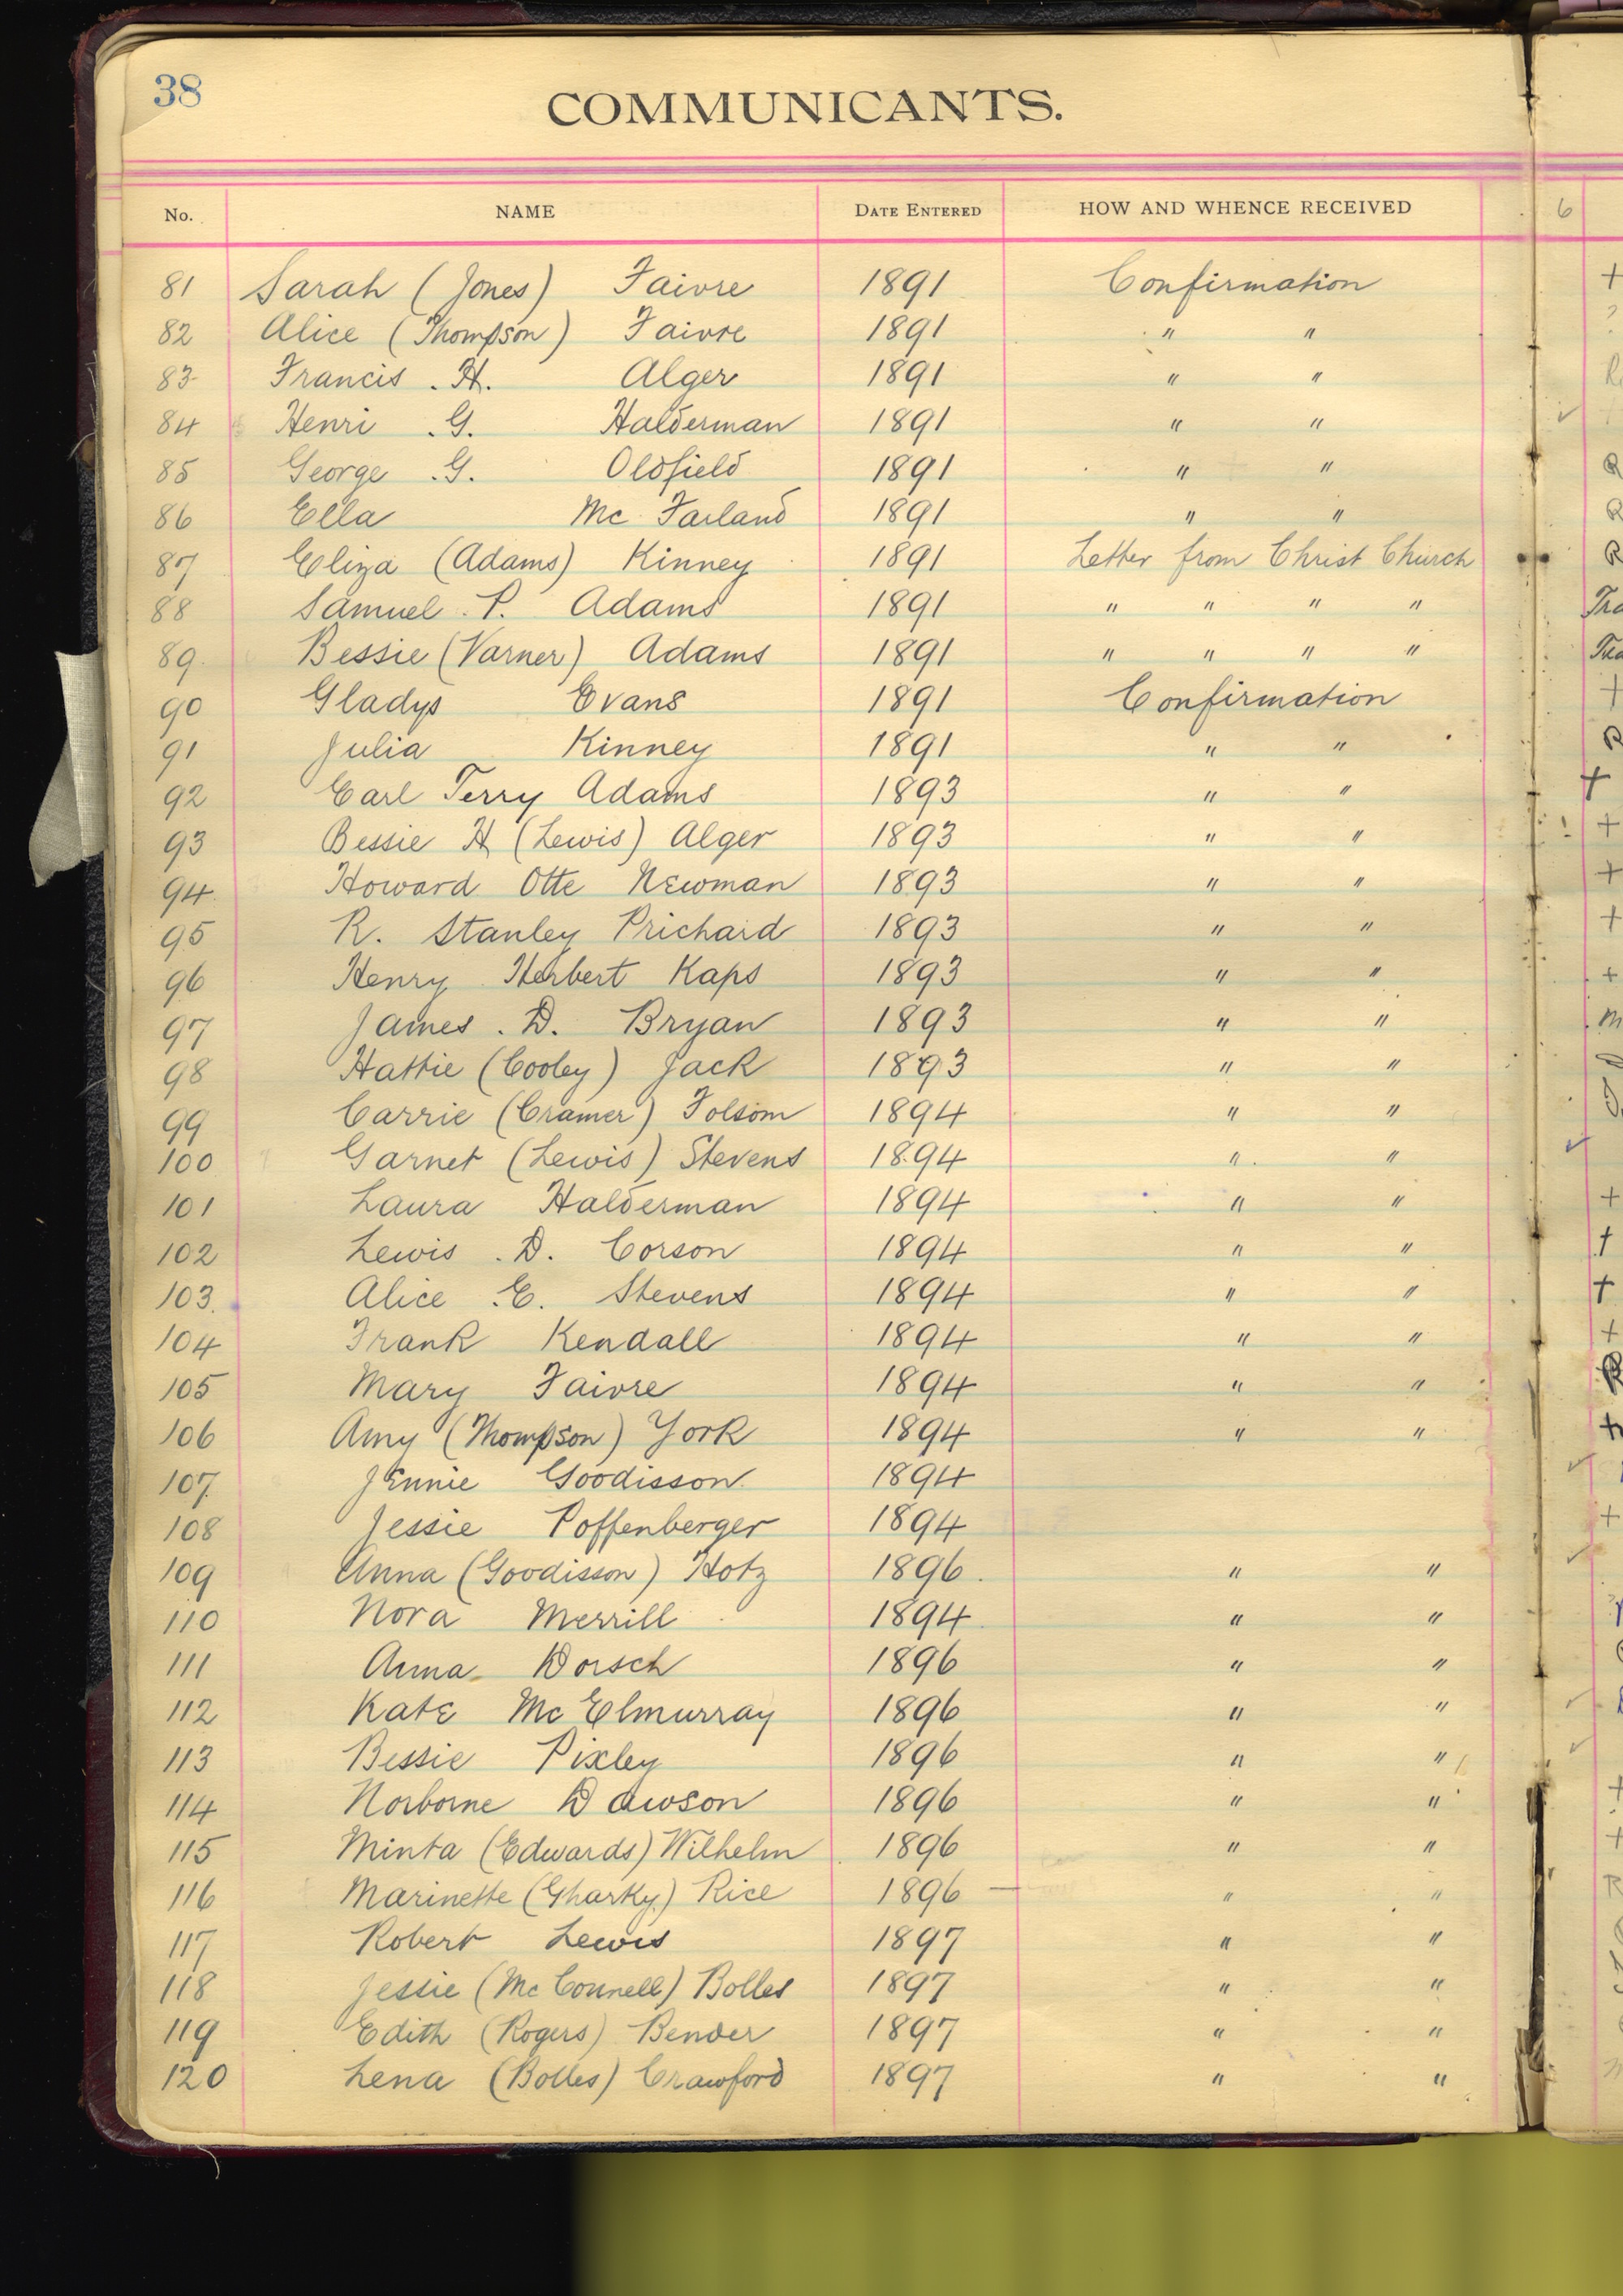 38
COMMUNICANTS.
No. NAME DATE ENTERED HOW AND WHENCE RECEIVED 6
81 Sarah (Jones) Faivre 1891 Confirmation +
82 Alice (Thompson) Faivre 1891 " "
83 Francis . H. Alger 1891 " "
84 Henri . G. Halderman 1891 " " ✓
85 George . G. Oldfield 1891 " "
86 Ella Mc Farland 1891 " "
87 Eliza (Adams) Kinney 1891 Letter from Christ Church
88 Samuel . P. Adams 1891 " " " " Tra
89 Bessie (Varner) Adams 1891 " " " " Tra
90 Gladys Evans 1891 Confirmation +
91 Julia Kinney 1891 " "
92 Carl Terry Adams 1893 " " +
93 Bessie H (Lewis) Alger 1893 " " +
94 Howard Otte Newman 1893 " " +
95 R. Stanley Prichard 1893 " " +
96 Henry Herbert Kaps 1893 " " +
97 James . D. Bryan 1893 " " m
98 Hattie (Cooley) Jack 1893 " "
99 Carrie (Cramer) Folsom 1894 " "
100 Garnet (Lewis) Stevens 1894 " " ✓
101 Laura Halderman 1894 " " +
102 Lewis . D. Corson 1894 " " +
103 Alice . E. Stevens 1894 " " +
104 Frank Kendall 1894 " " +
105 Mary Faivre 1894 " " R
106 Amy (Thompson) York 1894 " " +
107 Jennie Goodisson 1894 ✓
108 Jessie Poffenberger 1894 +
109 Anna (Goodisson) Hotz 1896 " " ✓
110 Nora Merrill 1894 " "
111 Anna Dorsch 1896 " "
112 Kate Mc Elmurray 1896 " " ✓
113 Bessie Pixley 1896 " " ✓
114 Norborne Dawson 1896 " " +
115 Minta (Edwards) Wilhelm 1896 " " +
116 Marinette (Gharky) Rice 1896 — " " R
117 Robert Lewis 1897 " "
118 Jessie (Mc Connell) Bolles 1897 " "
119 Edith (Rogers) Bender 1897 " "
120 Lena (Bolles) Crawford 1897 " "